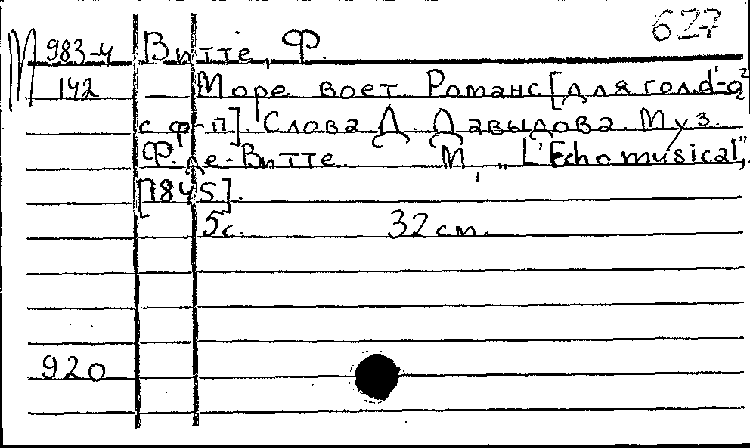 627
М 983-4 Витте, Ф.
142 Море воет. Романс [для гол. d¹-a²
с ф-п]. Слова Д. Давыдова. Муз.
Ф. де-Витте. М., "L'Echo musical",
[1845].
5 с. 32 см.
920